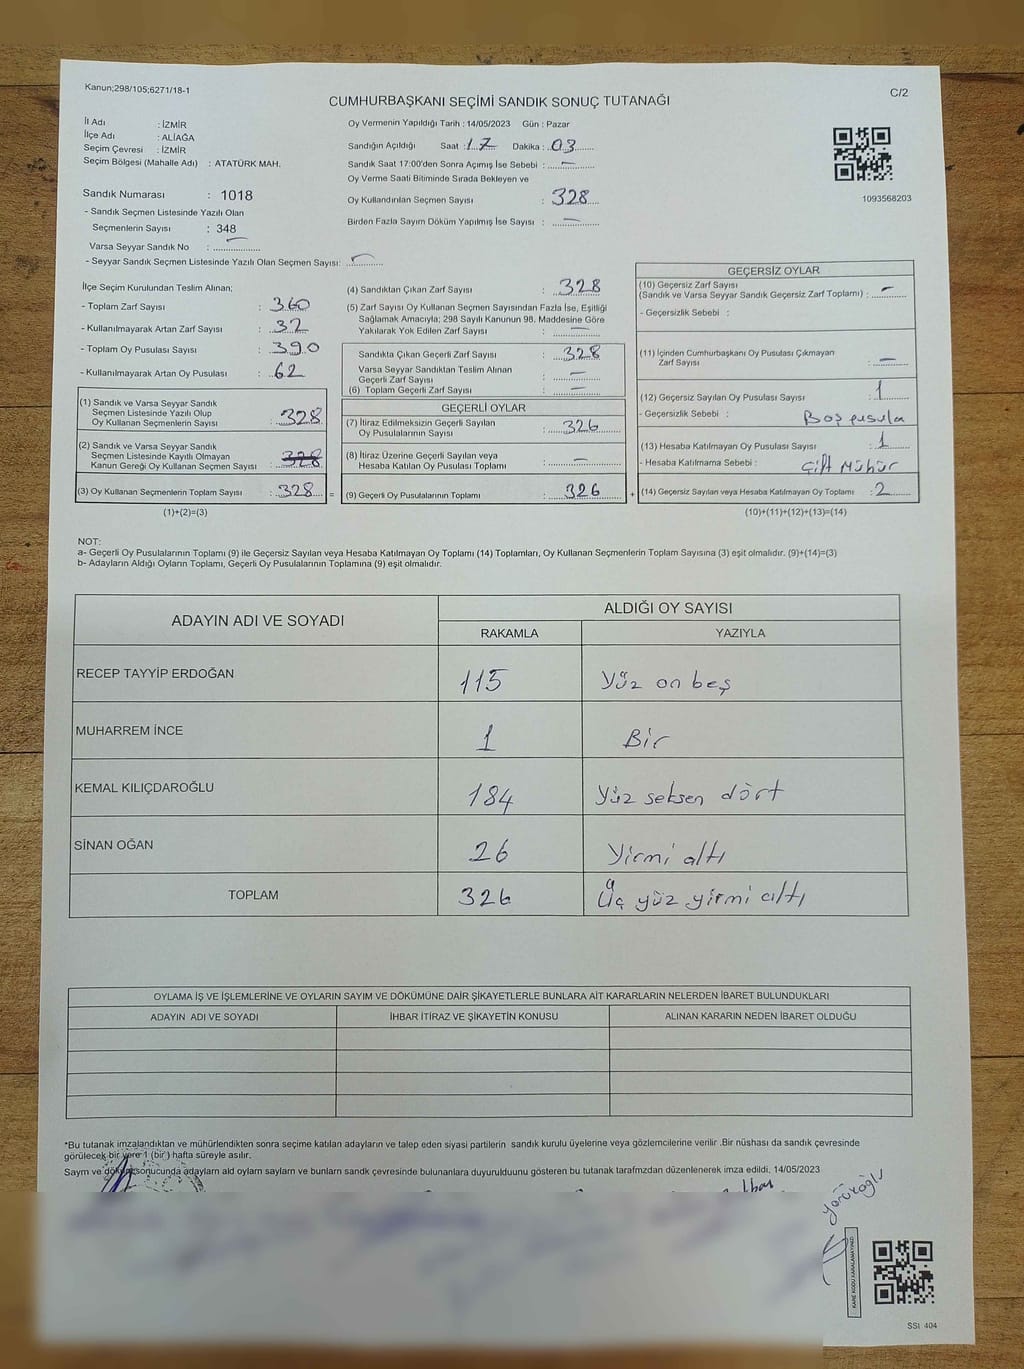 Kanun;298/105;6271/18-1
C/2
CUMHURBAŞKANI SEÇİMİ SANDIK SONUÇ TUTANAĞI
İl Adı : İZMİR
İlçe Adı : ALİAĞA
Seçim Çevresi : İZMİR
Seçim Bölgesi (Mahalle Adı) : ATATÜRK MAH.
Sandık Numarası : 1018
- Sandık Seçmen Listesinde Yazılı Olan
Seçmenlerin Sayısı : 348
Varsa Seyyar Sandık No : —
- Seyyar Sandık Seçmen Listesinde Yazılı Olan Seçmen Sayısı: —
Oy Vermenin Yapıldığı Tarih : 14/05/2023 Gün : Pazar
Sandığın Açıldığı Saat : 17 Dakika : 03
Sandık Saat 17:00'den Sonra Açımış İse Sebebi : —
Oy Verme Saati Bitiminde Sırada Bekleyen ve
Oy Kullandırılan Seçmen Sayısı : 328
Birden Fazla Sayım Döküm Yapılmış İse Sayısı : —
1093568203
İlçe Seçim Kurulundan Teslim Alınan;
- Toplam Zarf Sayısı : 360
- Kullanılmayarak Artan Zarf Sayısı : 32
- Toplam Oy Pusulası Sayısı : 390
- Kullanılmayarak Artan Oy Pusulası : 62
(1) Sandık ve Varsa Seyyar Sandık
Seçmen Listesinde Yazılı Olup
Oy Kullanan Seçmenlerin Sayısı : 328
(2) Sandık ve Varsa Seyyar Sandık
Seçmen Listesinde Kayıtlı Olmayan
Kanun Gereği Oy Kullanan Seçmen Sayısı : 328
(3) Oy Kullanan Seçmenlerin Toplam Sayısı : 328 =
(1)+(2)=(3)
(4) Sandıktan Çıkan Zarf Sayısı : 328
(5) Zarf Sayısı Oy Kullanan Seçmen Sayısından Fazla İse, Eşitliği
Sağlamak Amacıyla; 298 Sayılı Kanunun 98. Maddesine Göre
Yakılarak Yok Edilen Zarf Sayısı : —
Sandıkta Çıkan Geçerli Zarf Sayısı : 328
Varsa Seyyar Sandıktan Teslim Alınan
Geçerli Zarf Sayısı : —
(6) Toplam Geçerli Zarf Sayısı : —
GEÇERLİ OYLAR
(7) İtiraz Edilmeksizin Geçerli Sayılan
Oy Pusulalarının Sayısı : 326
(8) İtiraz Üzerine Geçerli Sayılan veya
Hesaba Katılan Oy Pusulası Toplamı : —
(9) Geçerli Oy Pusulalarının Toplamı : 326 +
GEÇERSİZ OYLAR
(10) Geçersiz Zarf Sayısı
(Sandık ve Varsa Seyyar Sandık Geçersiz Zarf Toplamı) : —
- Geçersizlik Sebebi :
(11) İçinden Cumhurbaşkanı Oy Pusulası Çıkmayan
Zarf Sayısı : —
(12) Geçersiz Sayılan Oy Pusulası Sayısı : 1
- Geçersizlik Sebebi : Boş pusula
(13) Hesaba Katılmayan Oy Pusulası Sayısı : 1
- Hesaba Katılmama Sebebi : Çift Mühür
(14) Geçersiz Sayılan veya Hesaba Katılmayan Oy Toplamı : 2
(10)+(11)+(12)+(13)=(14)
NOT:
a- Geçerli Oy Pusulalarının Toplamı (9) ile Geçersiz Sayılan veya Hesaba Katılmayan Oy Toplamı (14) Toplamları, Oy Kullanan Seçmenlerin Toplam Sayısına (3) eşit olmalıdır. (9)+(14)=(3)
b- Adayların Aldığı Oyların Toplamı, Geçerli Oy Pusulalarının Toplamına (9) eşit olmalıdır.
ADAYIN ADI VE SOYADI
ALDIĞI OY SAYISI
RAKAMLA YAZIYLA
RECEP TAYYİP ERDOĞAN 115 Yüz on beş
MUHARREM İNCE 1 Bir
KEMAL KILIÇDAROĞLU 184 Yüz seksen dört
SİNAN OĞAN 26 Yirmi altı
TOPLAM 326 Üç yüz yirmi altı
OYLAMA İŞ VE İŞLEMLERİNE VE OYLARIN SAYIM VE DÖKÜMÜNE DAİR ŞİKAYETLERLE BUNLARA AİT KARARLARIN NELERDEN İBARET BULUNDUKLARI
ADAYIN ADI VE SOYADI İHBAR İTİRAZ VE ŞİKAYETİN KONUSU ALINAN KARARIN NEDEN İBARET OLDUĞU
*Bu tutanak imzalandıktan ve mühürlendikten sonra seçime katılan adayların ve talep eden siyasi partilerin sandık kurulu üyelerine veya gözlemcilerine verilir .Bir nüshası da sandık çevresinde
görülecek bir yere 1 (bir ) hafta süreyle asılır.
Sayım ve döküm sonucunda adayların ald oyların sayların ve bunların sandk çevresinde bulunanlara duyurulduunu gösteren bu tutanak tarafmzdan düzenlenerek imza edildi. 14/05/2023
Yörükoğlu
KARE KODU KARALAMAYINIZ!
SSt: 404